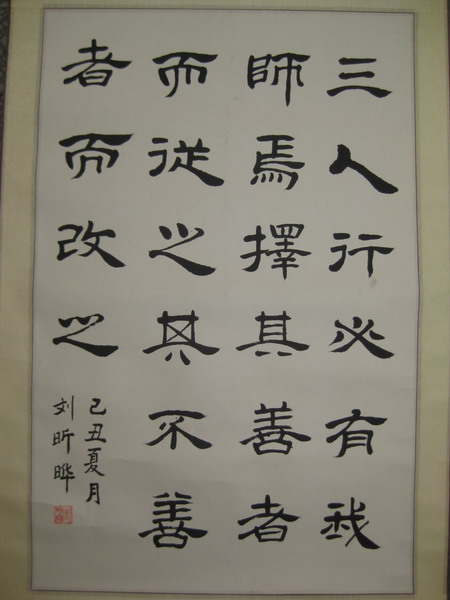 三人行必有我
師焉擇其善者
而從之其不善
者而改之
己丑夏月
刘昕晔